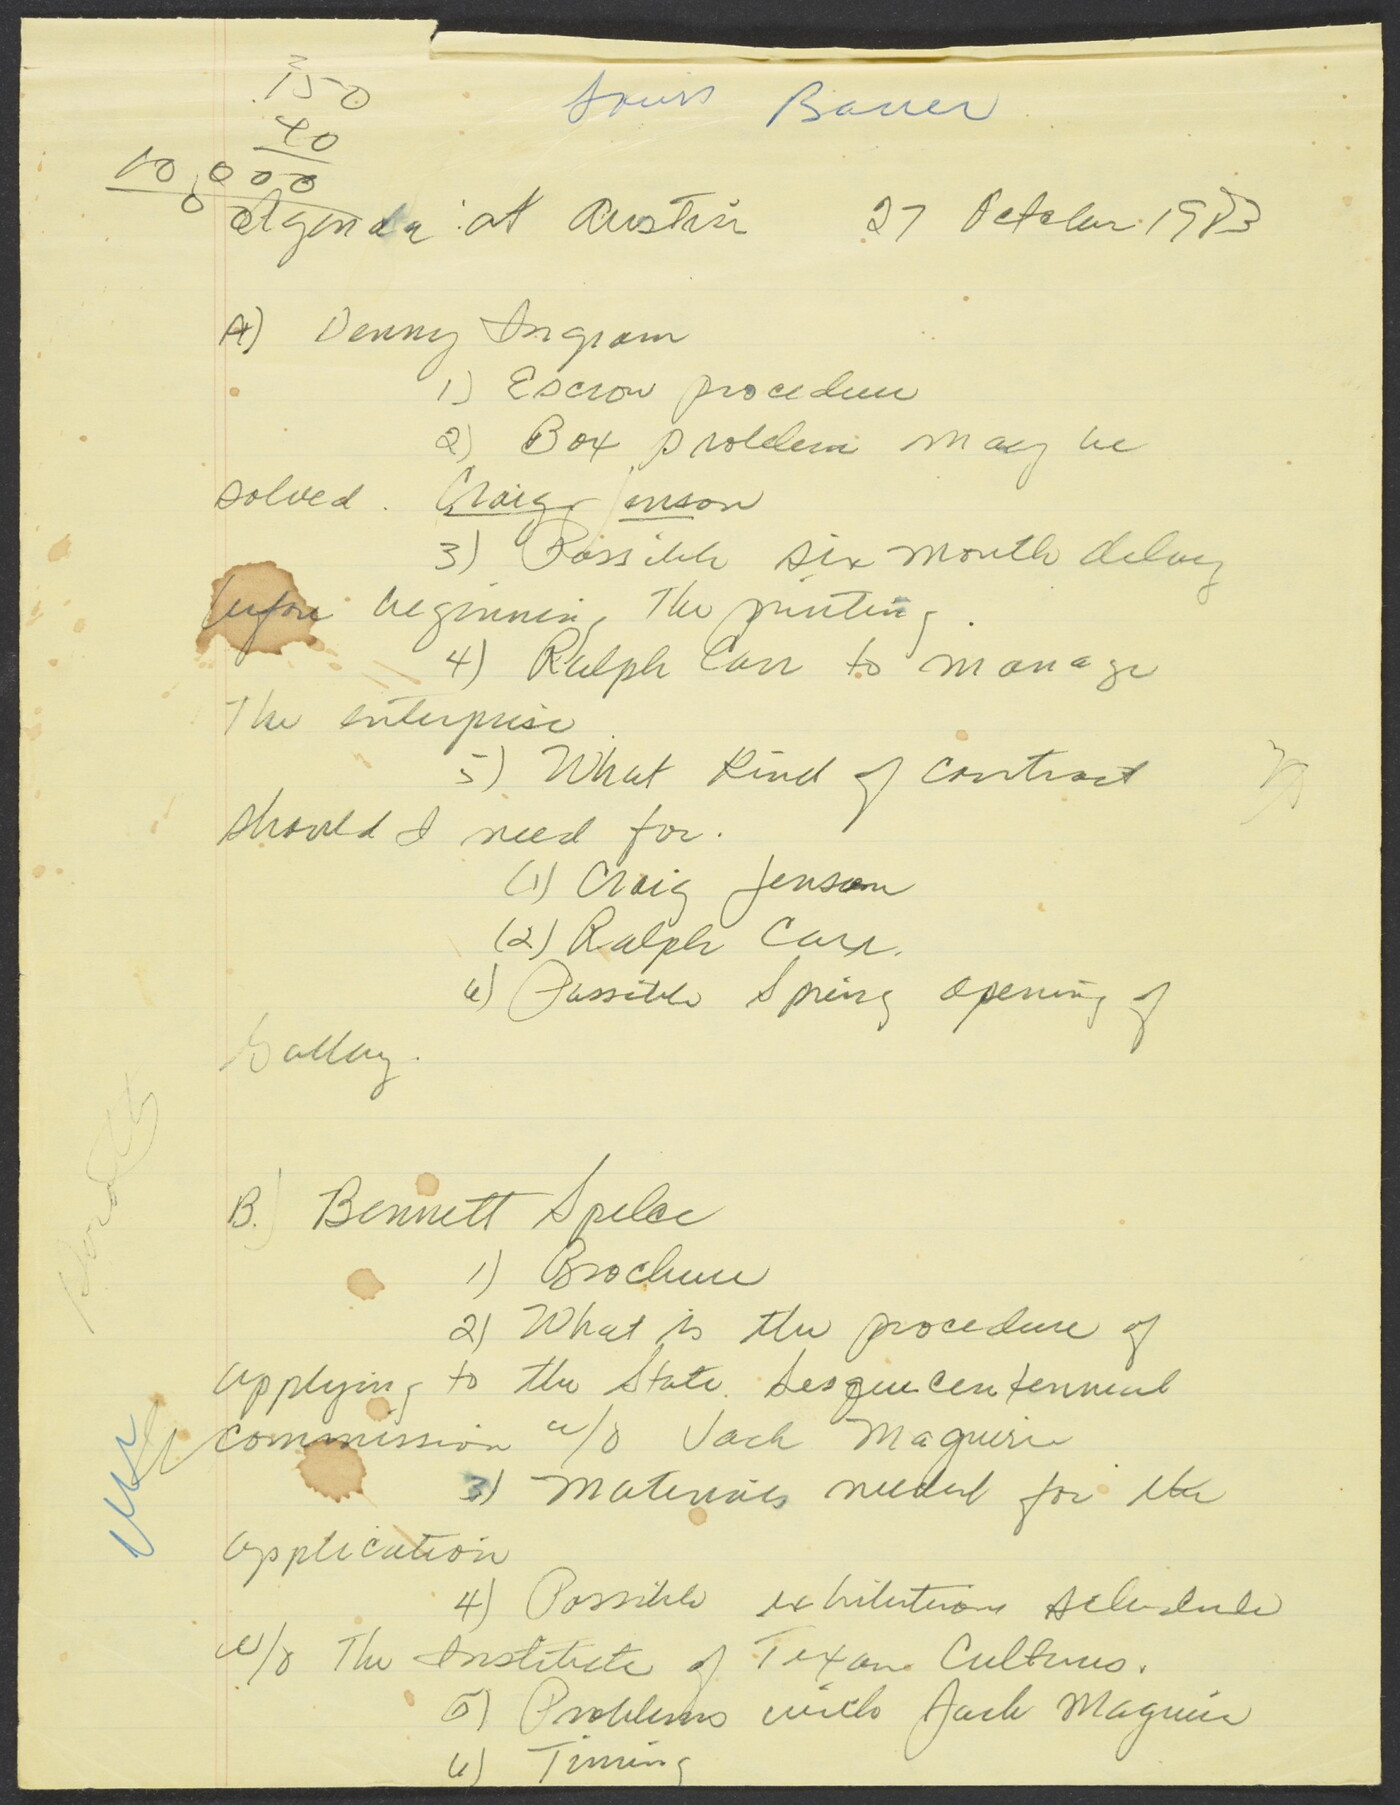 150
40
10,000
0
Louis Bauer
Agenda at Austin 27 October 1983
A) Denny Ingram
1) Escrow procedure
2) Box problem may be
solved. Craig Jenson
3) Possible six month delay
before beginning the printing.
4) Ralph Carr to manage
The enterprise
5) What kind of contract
should I need for.
(1) Craig Jenson
(2) Ralph Carr.
6) Possible Spring opening of
Gallery.
B.) Bennett Spelce
1) Brochure
2) What is the procedure of
applying to the State Sesquecentennial
commission w/o Jack Maguire
3) Materials needed for the
application
4) Possible exhibitions schedule
w/o The Institute of Texan Cultures.
5) Problems with Jack Maguire
6) Timing